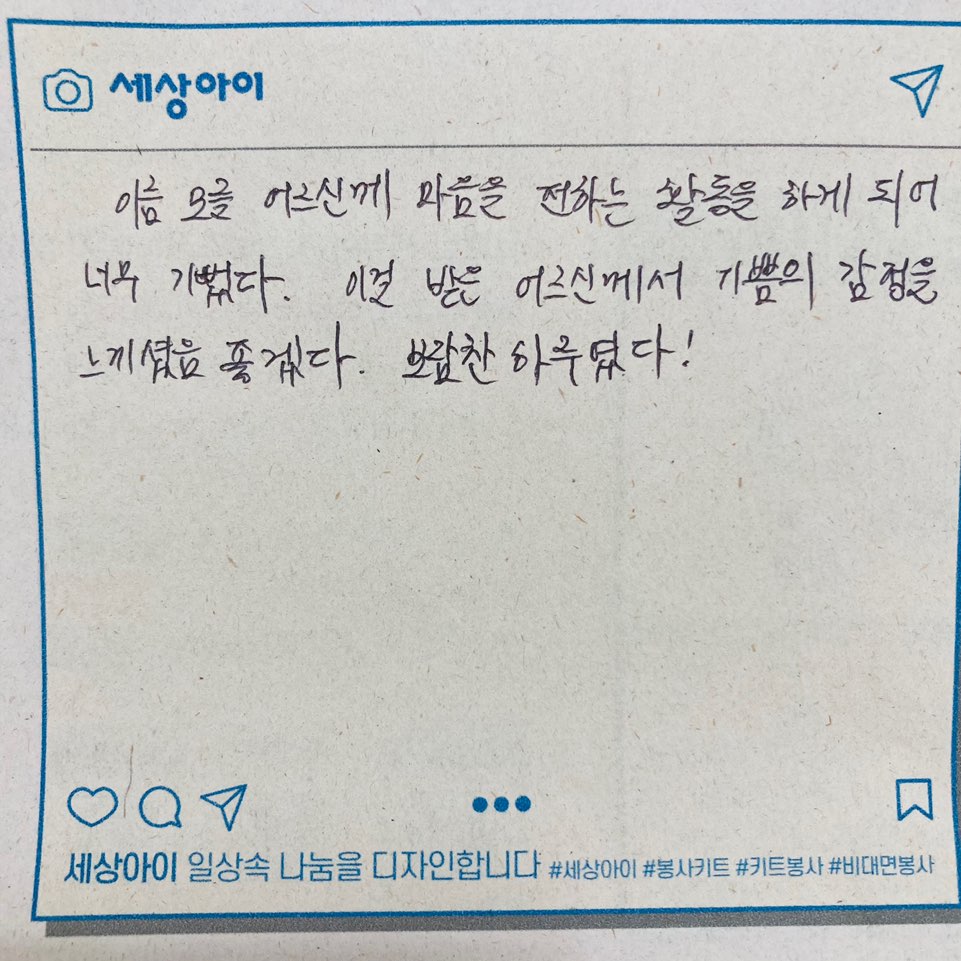 세상아이
이름 모를 어르신께 마음을 전하는 활동을 하게 되어
너무 기뻤다. 이걸 받은 어르신께서 기쁨의 감정을
느끼셨음 좋겠다. 보람찬 하루였다!
세상아이 일상속 나눔을 디자인합니다 #세상아이 #봉사키트 #키트봉사 #비대면봉사